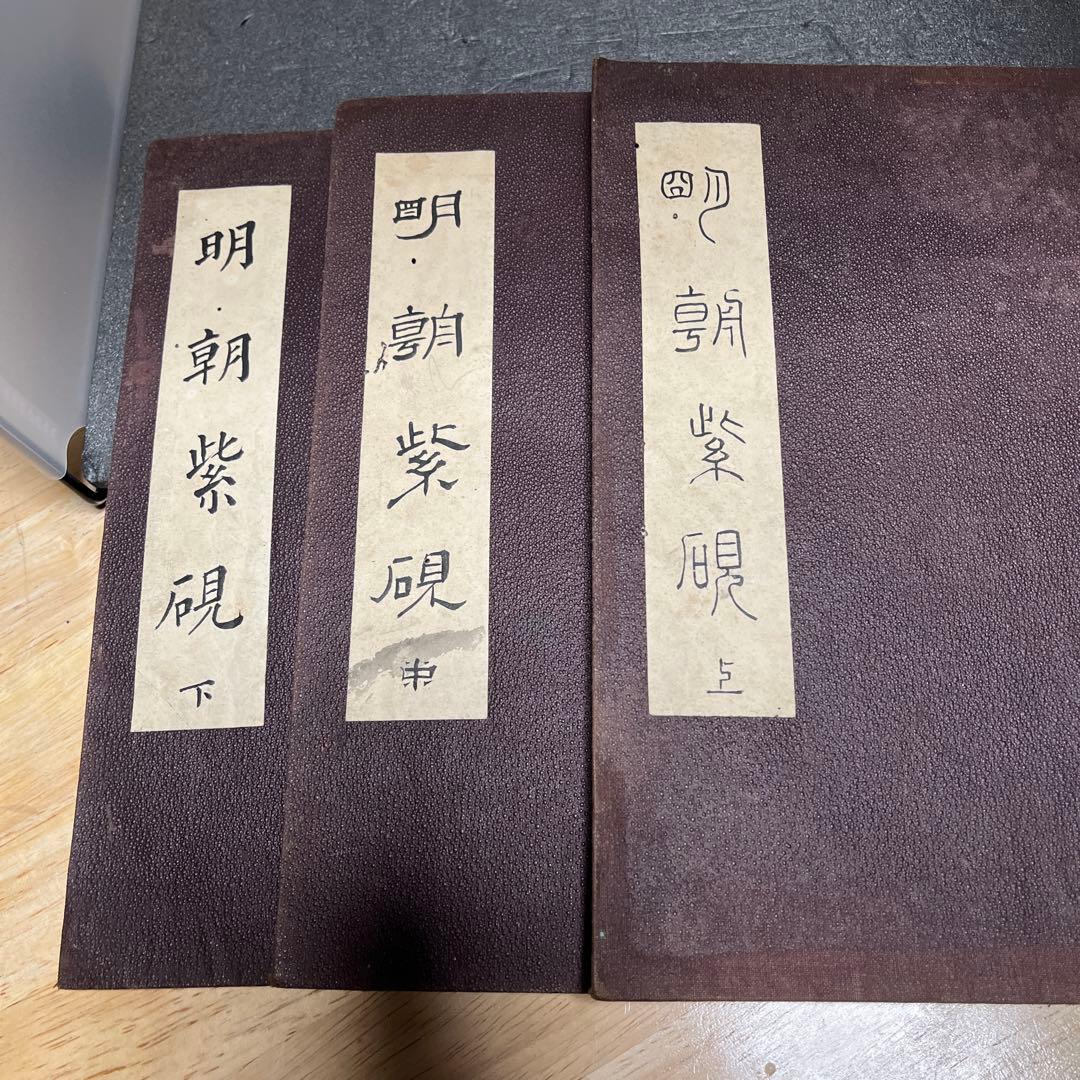 明・朝紫硯上
明・朝紫硯中
明・朝紫硯下